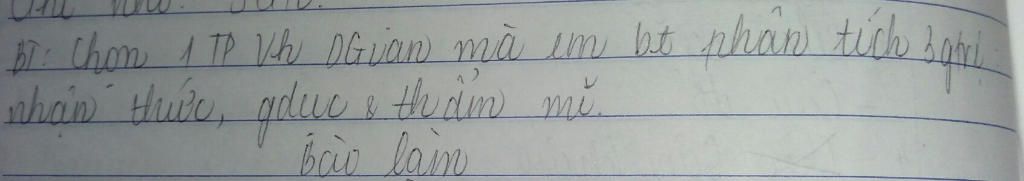 BT: Chọn 1 TP Vh DGian mà em bt phân tích 3 gtrị
nhận thức, gduc & thẩm mĩ.
Bài làm